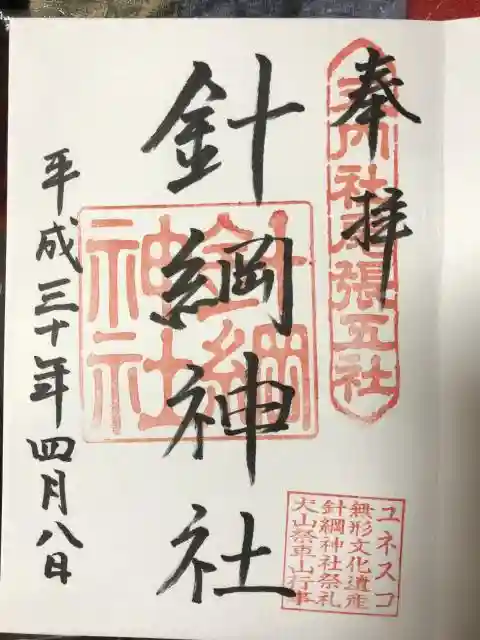 奉拝
式内社尾張五社
針綱神社
針綱
神社
平成三十年四月八日
ユネスコ
無形文化遺産
針綱神社祭礼
犬山祭車山行事